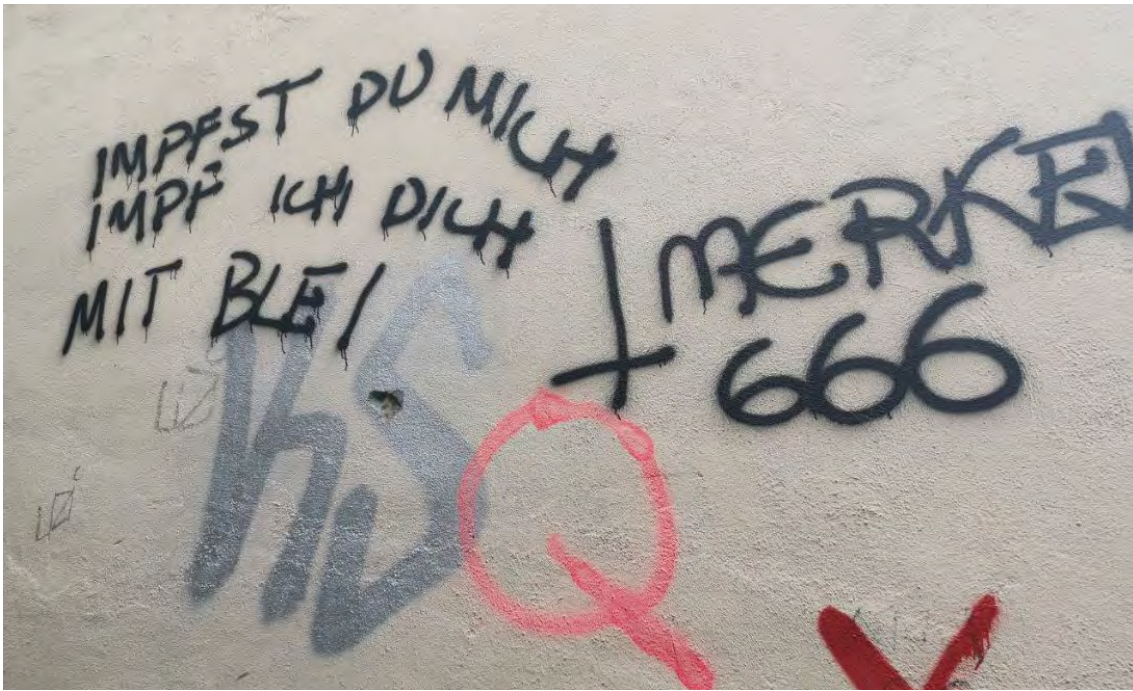 IMPFST DU MICH
IMPF ICH DICH
MIT BLEI
MERKEL
666
Q